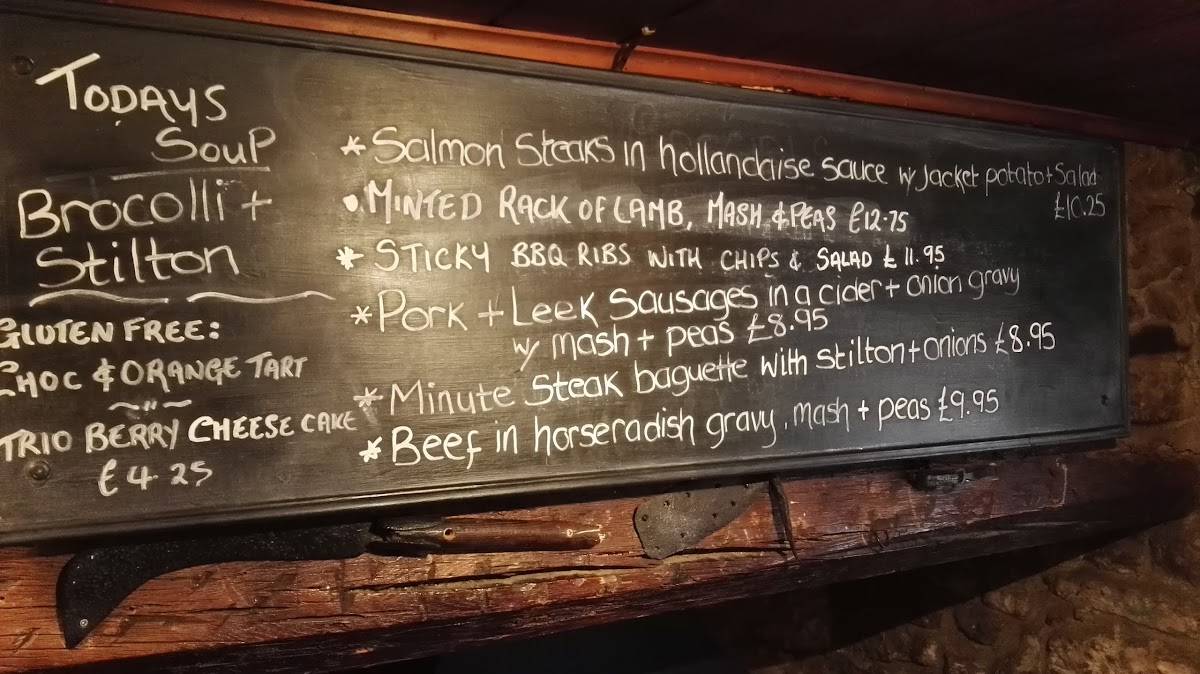 TODAYS
SOUP
Brocolli +
Stilton
GLUTEN FREE:
CHOC & ORANGE TART
~ " ~
TRIO BERRY CHEESE CAKE
£4.25
* Salmon Steaks in hollandaise sauce w/ Jacket potato + Salad
£10.25
• MINTED RACK OF LAMB, MASH & PEAS £12.75
* STICKY BBQ RIBS WITH CHIPS & SALAD £11.95
* Pork + Leek Sausages in a cider + onion gravy
w/ mash + peas £8.95
* Minute Steak baguette with Stilton + onions £8.95
* Beef in horseradish gravy, mash + peas £9.95